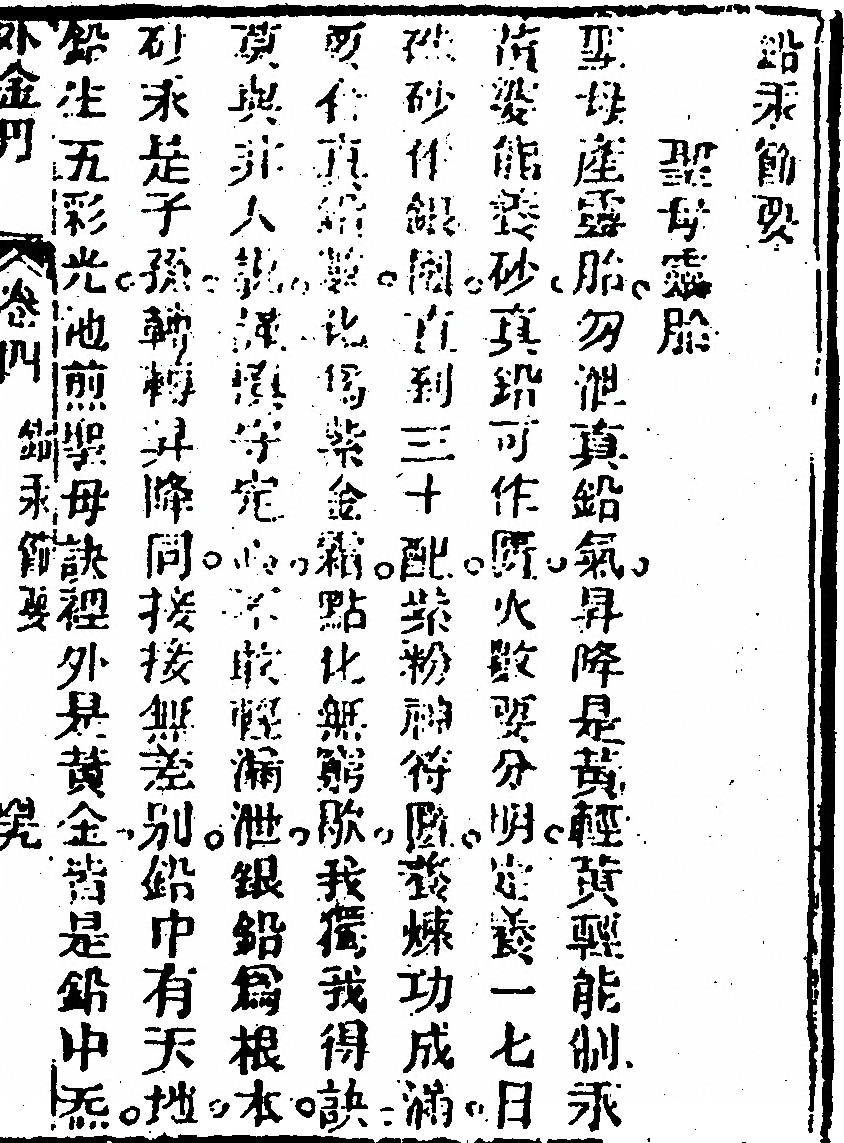 鉛汞節要
聖母靈胎
聖母產靈胎勿泄真鉛氣昇降是黃輕黃輕能制汞
黃婆能養砂真鉛可作匱火數要分明定養一七日
砂作銀團直到三十配紫粉神符匱養煉功成滿
真鉛製化為紫金霜點化無窮歌我獨我得訣
莫與非人說謹慎守定心不敢輕漏泄銀鉛為根本
砂汞是子孫轉轉昇降同接接無差別鉛中有天地
鉛生五彩光池煎聖母訣裡外是黃金皆是鉛中炁
外金丹 卷四 鉛汞節要